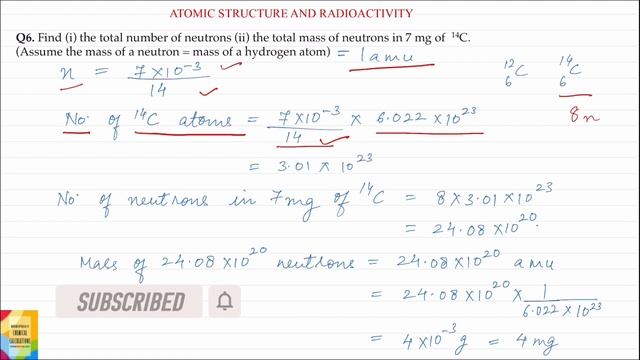 ATOMIC STRUCTURE AND RADIOACTIVITY
Q6. Find (i) the total number of neutrons (ii) the total mass of neutrons in 7 mg of ¹⁴C.
(Assume the mass of a neutron = mass of a hydrogen atom) = 1 amu
n = 7×10⁻³ / 14
¹²₆C ¹⁴₆C
8n
No. of ¹⁴C atoms = 7×10⁻³ / 14 × 6.022 ×10²³
= 3.01 × 10²³
No. of neutrons in 7mg of ¹⁴C = 8 × 3.01 × 10²³
= 24.08 ×10²⁰.
Mass of 24.08 ×10²⁰ neutrons = 24.08 ×10²⁰ amu
= 24.08 ×10²⁰ × 1 / 6.022 ×10²³
= 4 ×10⁻³ g = 4 mg
SUBSCRIBED
CHEMICAL
CALCULATIONS